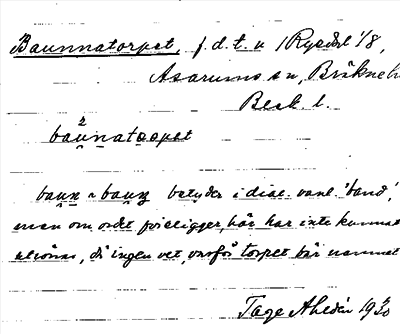 Baunnatorpet, f.d.t. u /Ryedet 1/8,
Asarums sn, Bräkne h.
Blek. l.
baunatorpet
baun ~ baun betyder i dial. vanl. 'band',
men om ordet föreligger, här har inte kunnat
utrönas, då ingen vet, varför torpet bär namnet
Tage Ahldén 1930